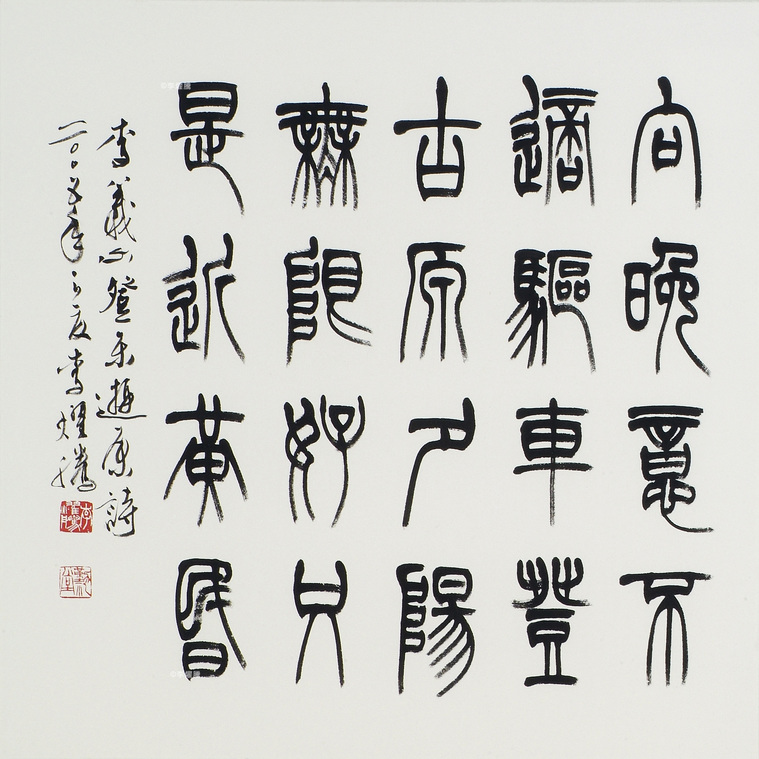 向晚意不
適驅車登
古原夕陽
無限好只
是近黃昬
李義山登樂遊原詩
二〇〇五年之夏李燿騰